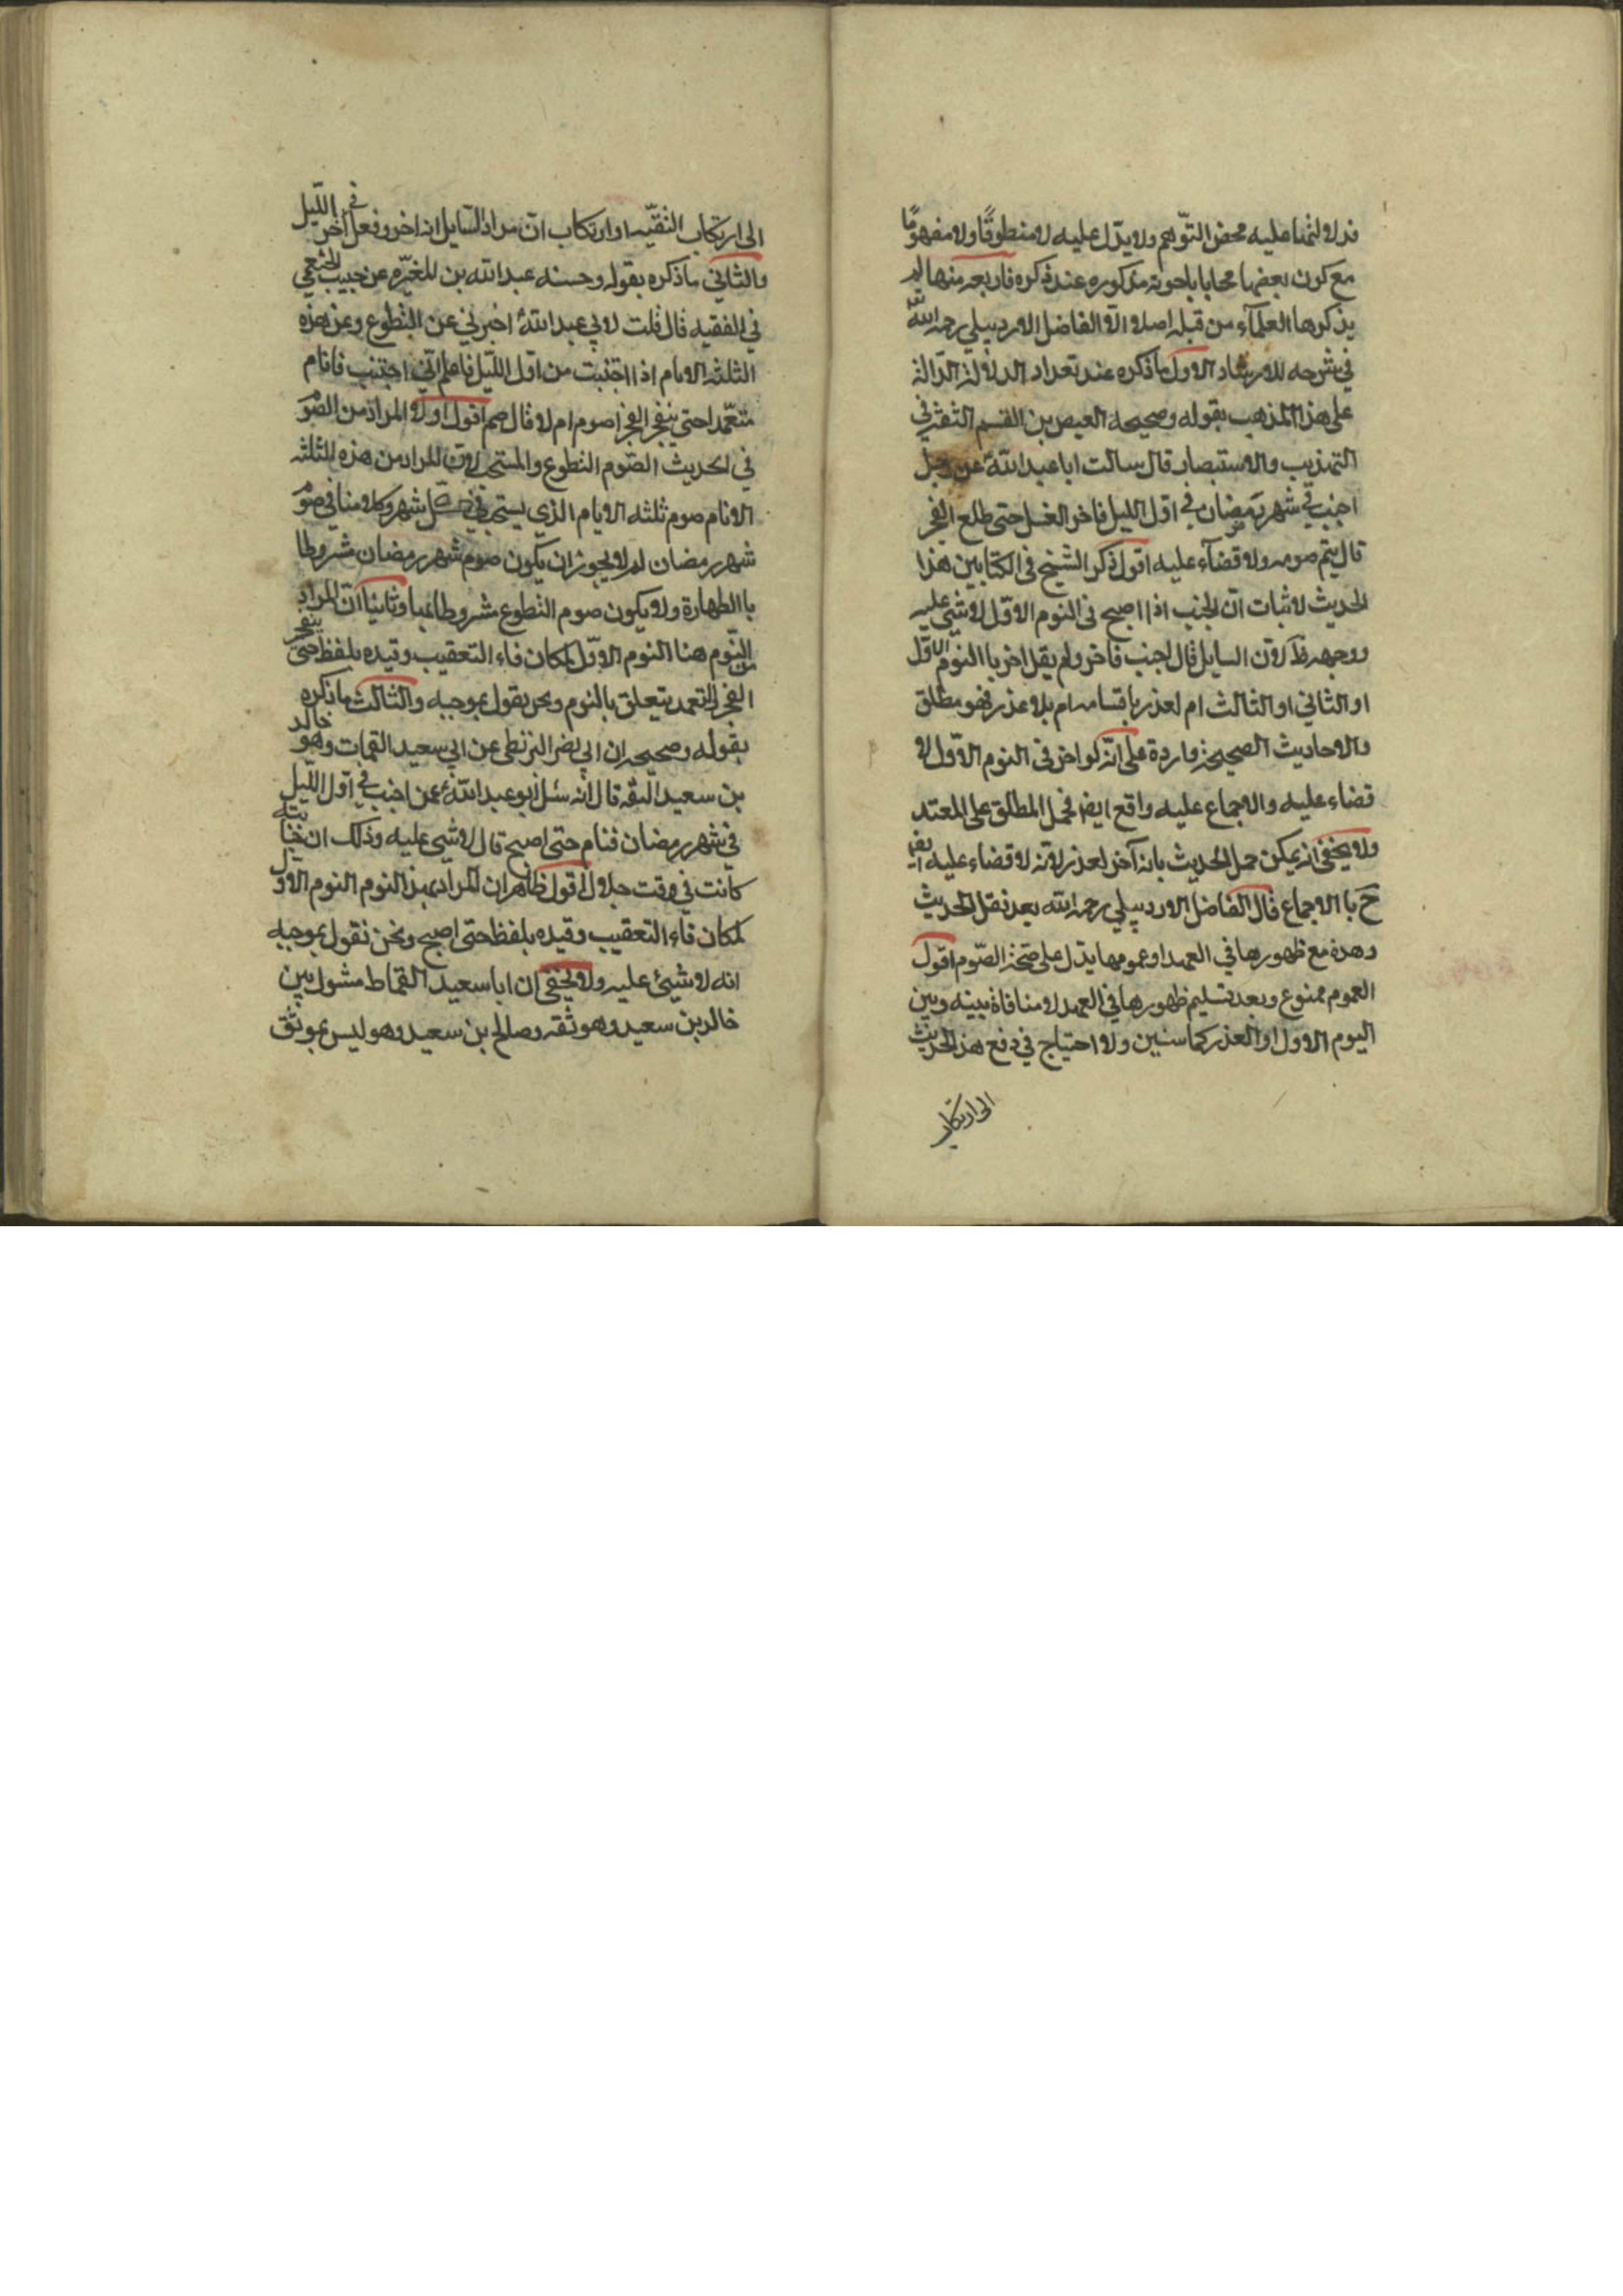 فدلالتها عليه محض التوّهم ولا يدّل عليه لا منطوقًا ولا مفهومًا
مع كون بعضها مجابا باجوبة مذكوره عند ذكره فاربعه منها لم
يذكرها العلمآء من قبله اصلا الّا الفاضل الاردبيلي رحمه الله
في شرحه للارشاد الاول ما ذكره عند تعداد الدلالة الدّالة
على هذا المذهب بقوله وصحيحه العيص بن القسم الثقة في
التهذيب والاستبصار قال سالت ابا عبد الله ع عن رجل
اجنب في شهر رمضان في اول الليل فاخر الغسل حتى طلع الفجر
قال يتم صومه ولا قضآء عليه اقول ذكر الشيخ في الكتابين هذا
الحديث لاثبات انّ الجنب اذا اصبح في النوم الاوّل لا شئ عليه
ووجهه ظ لانّ السايل قال اجنب فاخر ولم يقل اخر باالنوم الاوّل
او الثاني او الثالث ام لعذر باقسامه ام بلا عذر فهو مطلق
والاحاديث الصحيحة واردة على انّه لو اخر في النوم الاوّل لا
قضاء عليه والاجماع عليه واقع ايضا فحمل المطلق على المعتد
ولا يخفى انه يمكن حمل الحديث بانه آخر لعذر لانه لا قضاء عليه ايضا
ح باالاجماع قال الفاضل الاردبيلي رحمه الله بعد نقل الحديث
وهذه مع ظهورها في العمد او عمومها يدل على صحة الصّوم اقول
العموم ممنوع وبعد تسليم ظهورها في العمد لا منافاة بينه وبين
اليوم الاول او العذر كما سنبين ولا احتياج في دفع هذ الحديث
الى ارتكاب
الى ارتكاب التقيّه او ارتكاب انّ مراد السّايل انه اخر وفعل في آخر اللّيل
والثاني ما ذكره بقوله وحسنه عبد الله بن المغيّره عن حبيب الخثعمي
في الفقيه قال قلت لابي عبد الله ع اخبرني عن التطوع وعن هذه
الثلثه الايام اذا اجنبت من اوّل اللّيل فاعلم انّي اجتنب فانام
متعّمدا حتى ينفجر الفجر اصوم ام لا قال صم اقول اولا المراد من الصّوم
في الحديث الصّوم التطوع والمستحب لانّ المراد من هذه الثلثه
الايام صوم ثلثه الايام الذي يستحب في كلّ شهر وكلامنا في صوم
شهر رمضان لم لا يجوز ان يكون صوم شهر رمضان مشروطا
باالطهارة ولا يكون صوم التطوع مشروطا بها وثانيا انّ المراد
من النّوم هنا النوم الاوّل لمكان فاء التعقيب وقيده بلفظ حتى ينفجر
الفجر التعمد يتعلق بالنوم ونحن نقول بموجبه والثالث ما ذكره
بقوله وصحيحه ابن ابي نضر البزنطى عن ابي سعيد القمات وهو خالد
بن سعيد الثقه قال انه سئل ابو عبد الله ع عمن اجنب في اوّل اللّيل
في شهر رمضان فنام حتى اصبح قال لا شئ عليه وذلك ان جنابته
كانت في وقت حلال اقول ظاهر ان المراد بهذ النوم النوم الاوّل
لمكان فاء التعقيب وقيده بلفظ حتى اصبح ونحن نقول بموجبه
انه لا شيئ عليه ولا يخفى ان ابا سعيد القماط مشول بين
خالد بن سعيد وهو ثقه وصالح بن سعيد وهو ليس بموثق